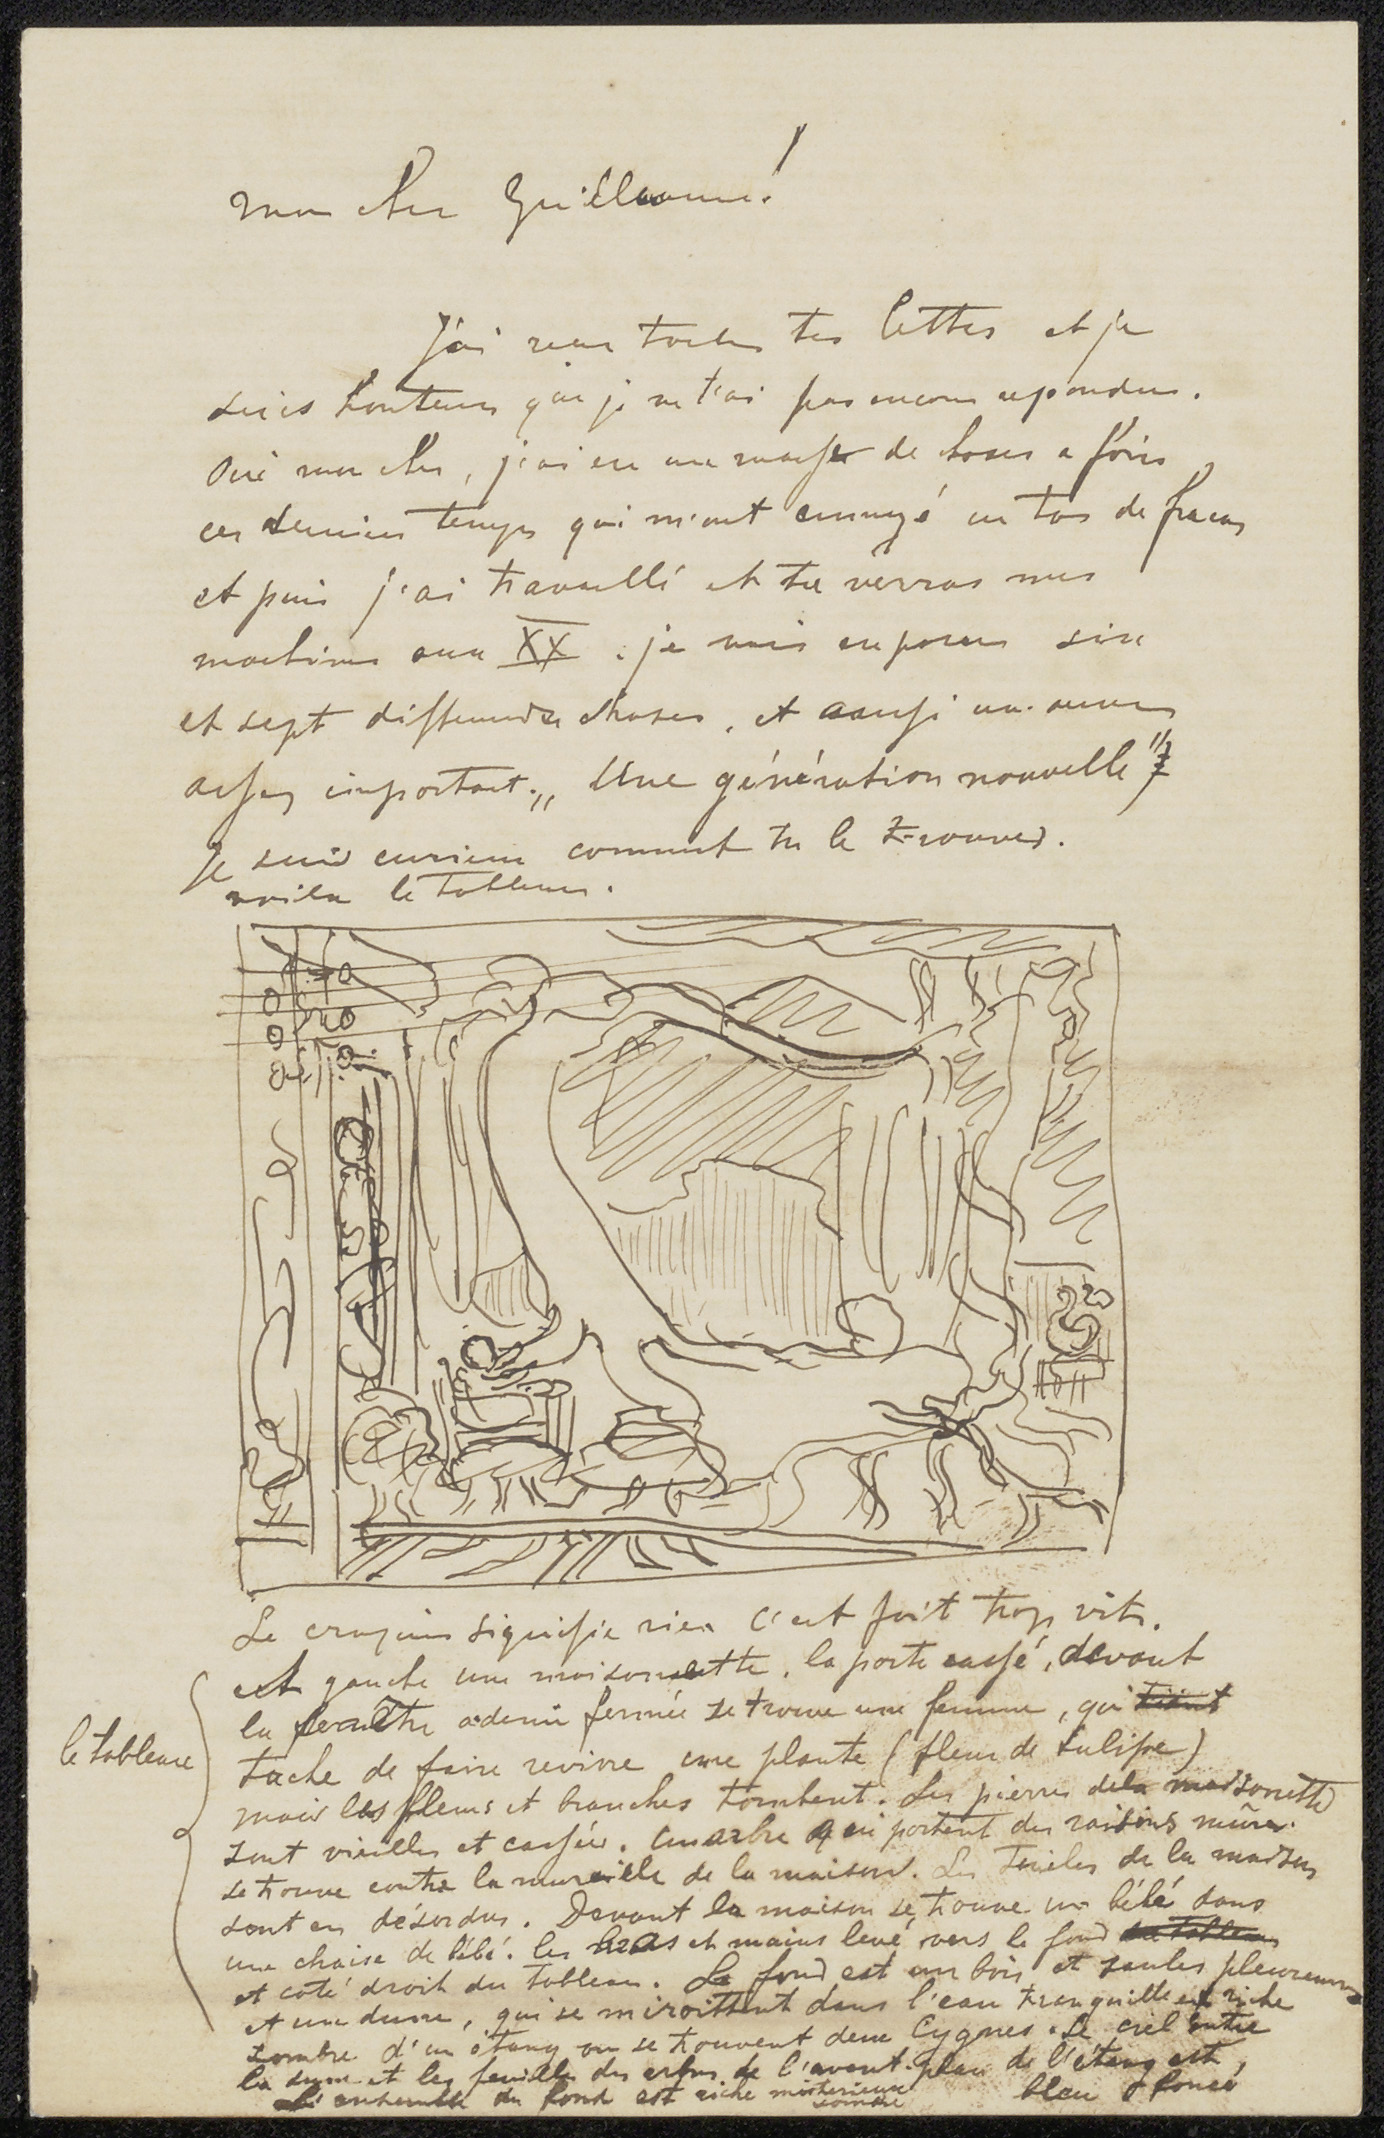 mon cher Guillaume!
J'ai reçu toutes tes lettres et je
suis honteux que je ne t'ai pas encore repondu.
Oui mon cher, j'ai eu une masse de choses a fair
ces derniers temps qui m'ont ennuyé un tas de fracas
et puis j'ai travaillé et tu verras mes
machines aux XX. je vais exposer six
et sept differends choses, et aussi une œuvre
assez important. „Une génération nouvelle"
Je suis curieux comment tu le trouves.
voila le tableau.
Le croquis signifie rien c'est fait trop vite.
le tableau
et gauche une maisonnette, la porte cassé, devant
la fenêtre a demi fermée se trouve une femme, qui
tache de faire revivre une plante (fleur de tulipe)
mais les fleurs et branches tombent. Les pierres de la maisonette
sont vieilles et cassées. Un arbre qui portent des raisins mûrs.
se trouve contre la muraille de la maison. Les tuiles de la maison
sont en désordre. Devant la maison se trouve un bébé dans
une chaise de bébé. les bras et mains levé vers le fond du tableau
et coté droit du tableau. Le fond est un bois et saules pleureurs
et une dune, qui se miroittent dans l'eau tranquille et riche
sombre d'un étang ou se trouvent deux Cygnes. Le ciel entre
la dune et les feuilles des arbres de l'avant-plan de l'étang est,
bleu foncé
L'ensemble du fond est riche misterieux
sombre